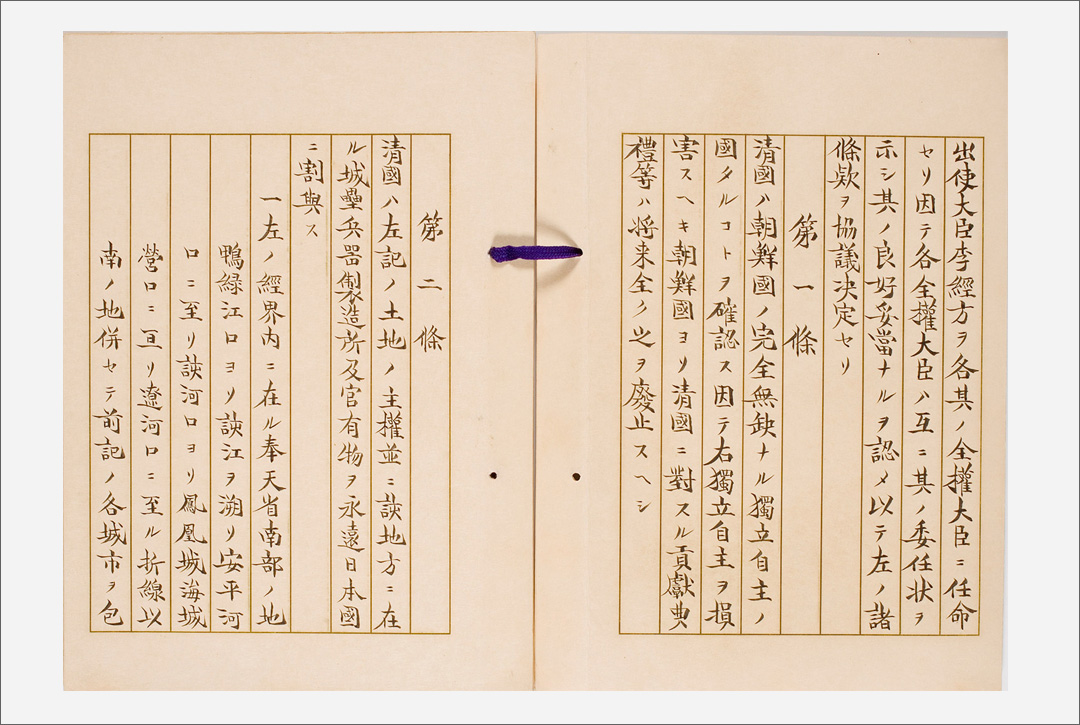 出使大臣李經方ヲ各其ノ全權大臣ニ任命
セリ因テ各全權大臣ハ互ニ其ノ委任狀ヲ
示シ其ノ良好妥當ナルヲ認メ以テ左ノ諸
條款ヲ協議決定セリ
第一條
清國ハ朝鮮國ノ完全無缺ナル獨立自主ノ
國タルコトヲ確認ス因テ右獨立自主ヲ損
害スヘキ朝鮮國ヨリ清國ニ對スル貢獻典
禮等ハ將来全ク之ヲ廢止スヘシ
第二條
清國ハ左記ノ土地ノ主權並ニ該地方ニ在
ル城壘兵器製造所及官有物ヲ永遠日本國
ニ割與ス
一左ノ經界内ニ在ル奉天省南部ノ地
鴨緑江口ヨリ該江ヲ溯リ安平河
口ニ至リ該河口ヨリ鳳凰城海城
營口ニ亘リ遼河口ニ至ル折線以
南ノ地併セテ前記ノ各城市ヲ包